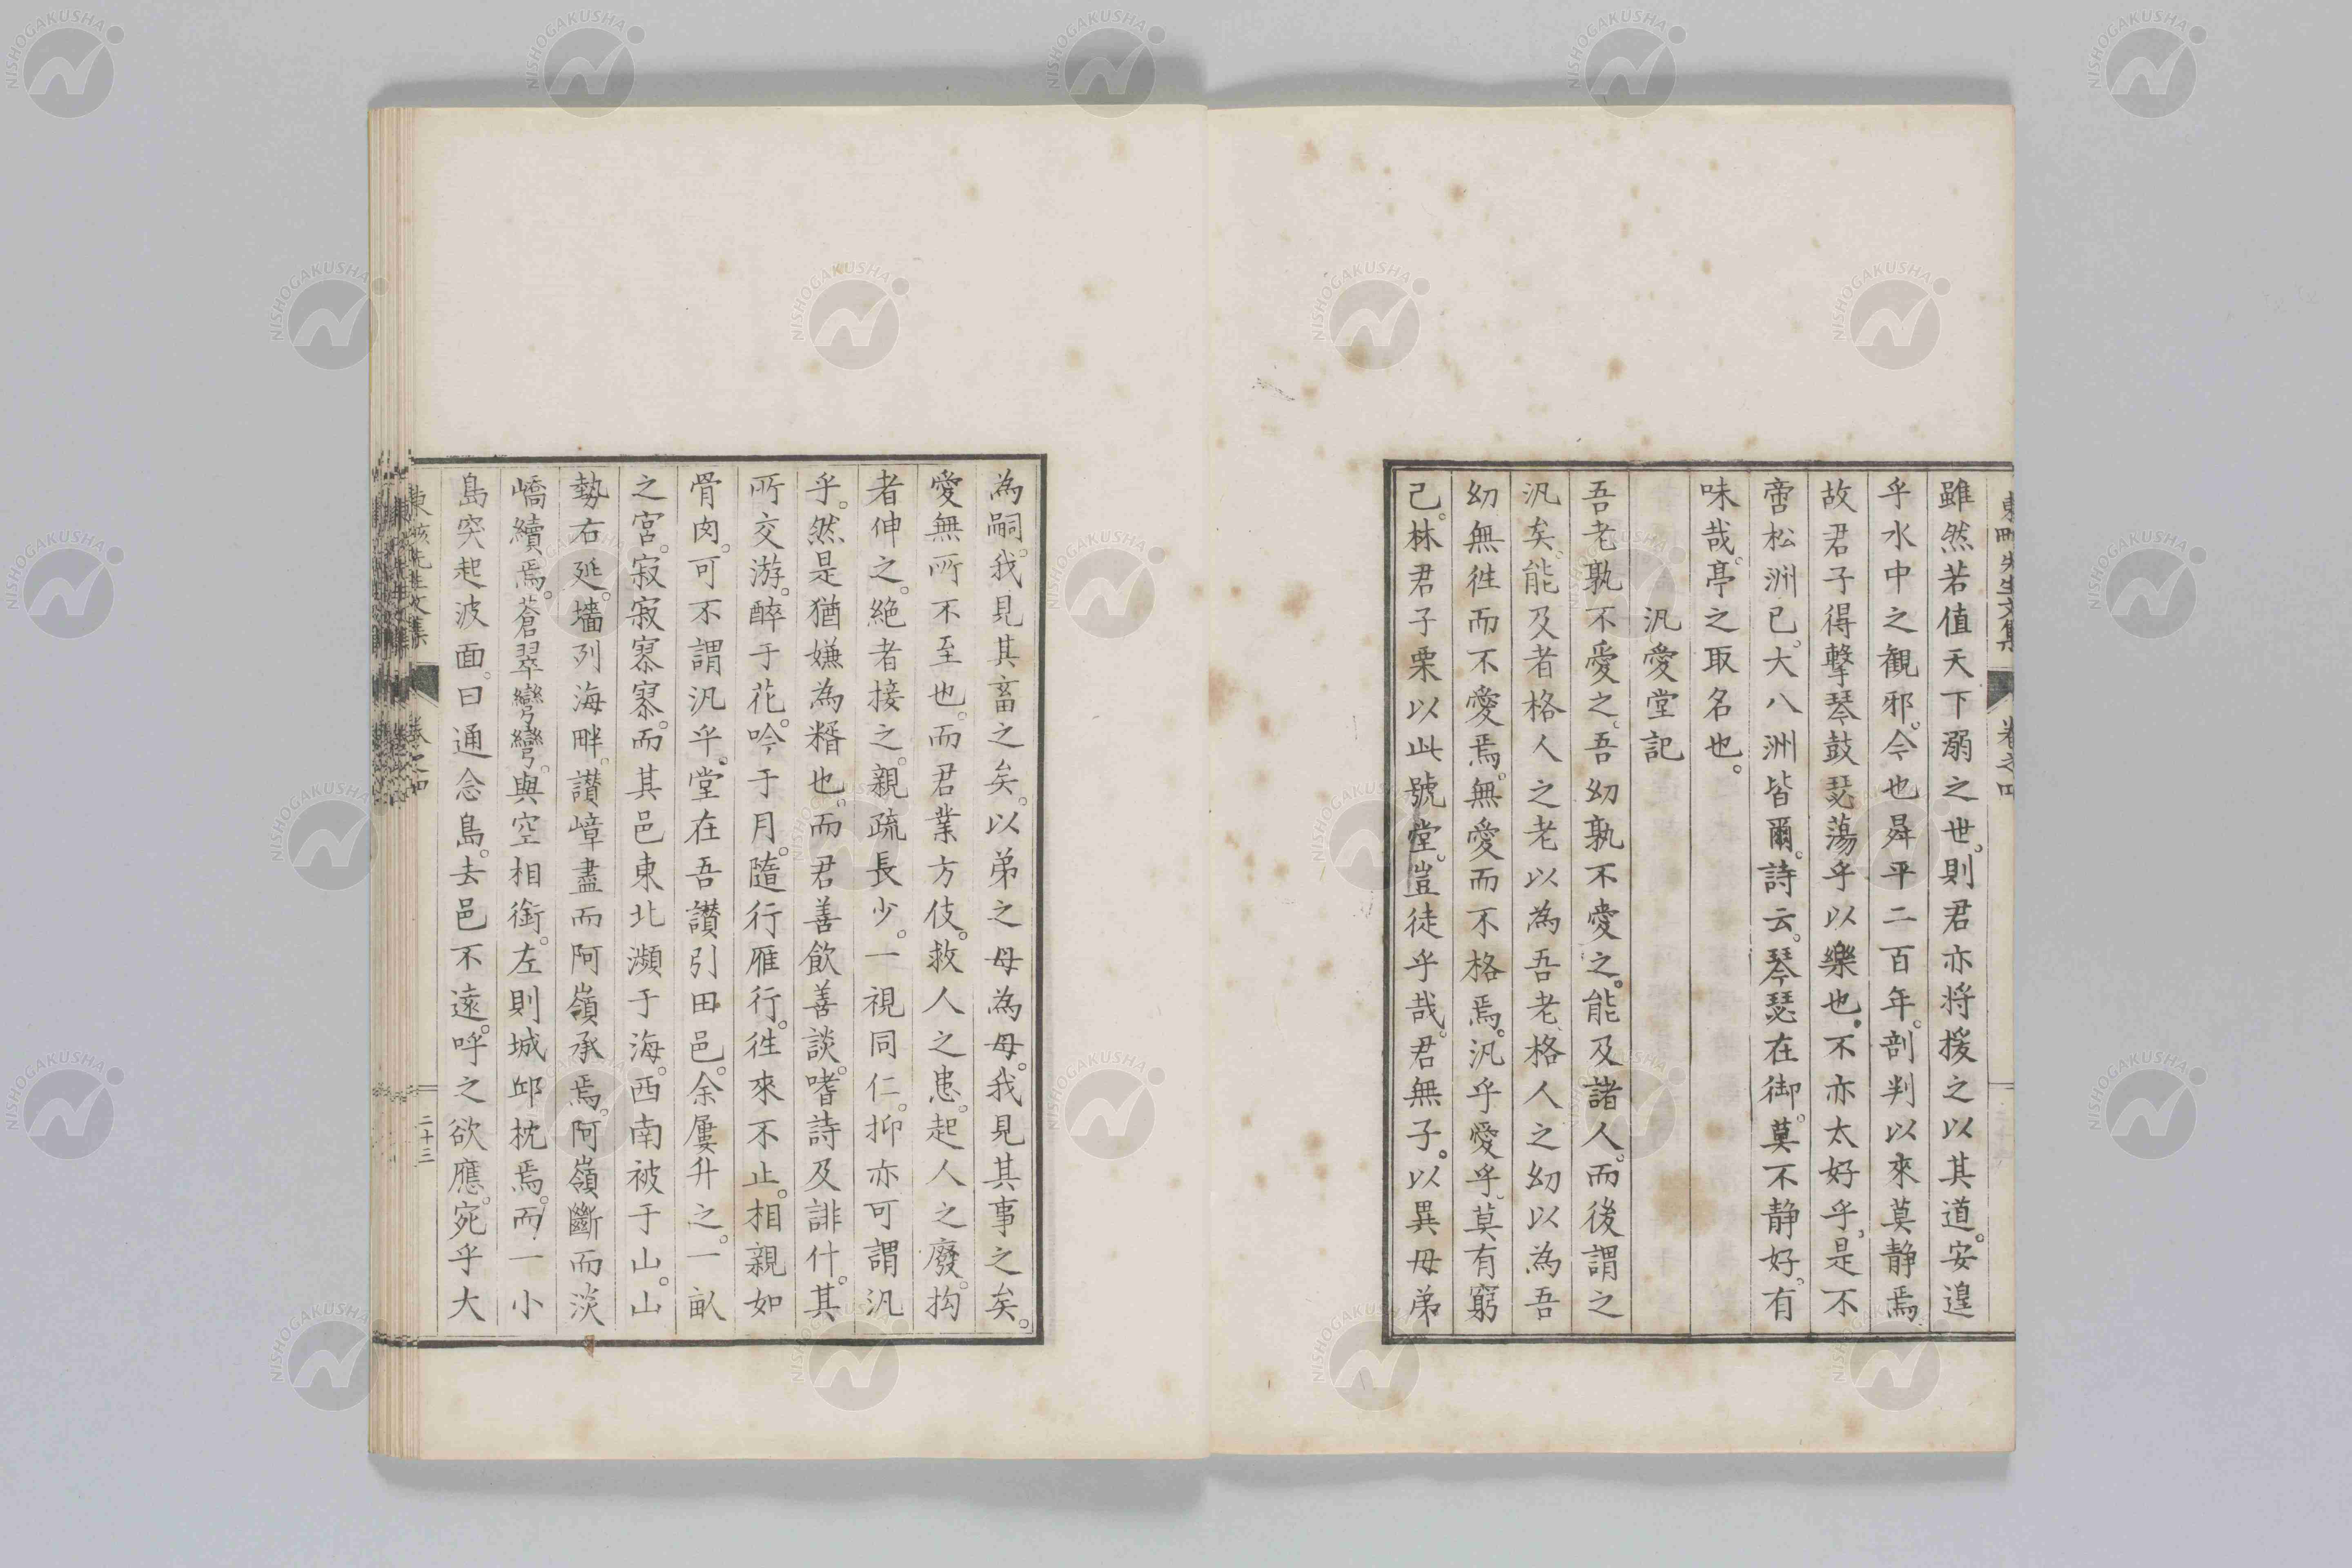 雖然若值天下溺之世。則君亦將援之以其道。安遑
乎水中之觀邪。今也昇平二百年。剖判以來莫静焉。
故君子得擊琴鼓瑟蕩乎以樂也。不亦太好乎。是不
啻松洲已。大八洲皆爾。詩云。琴瑟在御。莫不静好。有
味哉。亭之取名也。
汎愛堂記
吾老孰不愛之。吾幼孰不愛之。能及諸人。而後謂之
汎矣。能及者格人之老以為吾老格人之幼以為吾
幼無徃而不愛焉。無愛而不格焉。汎乎愛乎。莫有窮
己。林君子栗以此號堂。豈徒乎哉。君無子。以異母弟
為嗣。我見其畜之矣。以弟之母為母。我見其事之矣。
愛無所不至也。而君業方伎。救人之患。起人之廢。拘
者伸之。絶者接之。親疏長少。一視同仁。抑亦可謂汎
乎。然是猶嫌為糈也。而君善飲善談。嗜詩及誹什。其
所交游。醉于花。吟于月。隨行雁行。徃來不止。相親如
骨肉。可不謂汎乎。堂在吾讃引田邑。余屢升之。一畝
之宮。寂寂寥寥。而其邑東北瀕于海。西南被于山。山
勢右延。墻列海畔。讃嶂盡而阿嶺承焉。阿嶺斷而淡
嶠續焉。蒼翠彎彎。與空相銜。左則城邱枕焉。而一小
島突起波面。曰通念島。去邑不遠。呼之欲應。宛乎大
先生文集
卷之四
二十三